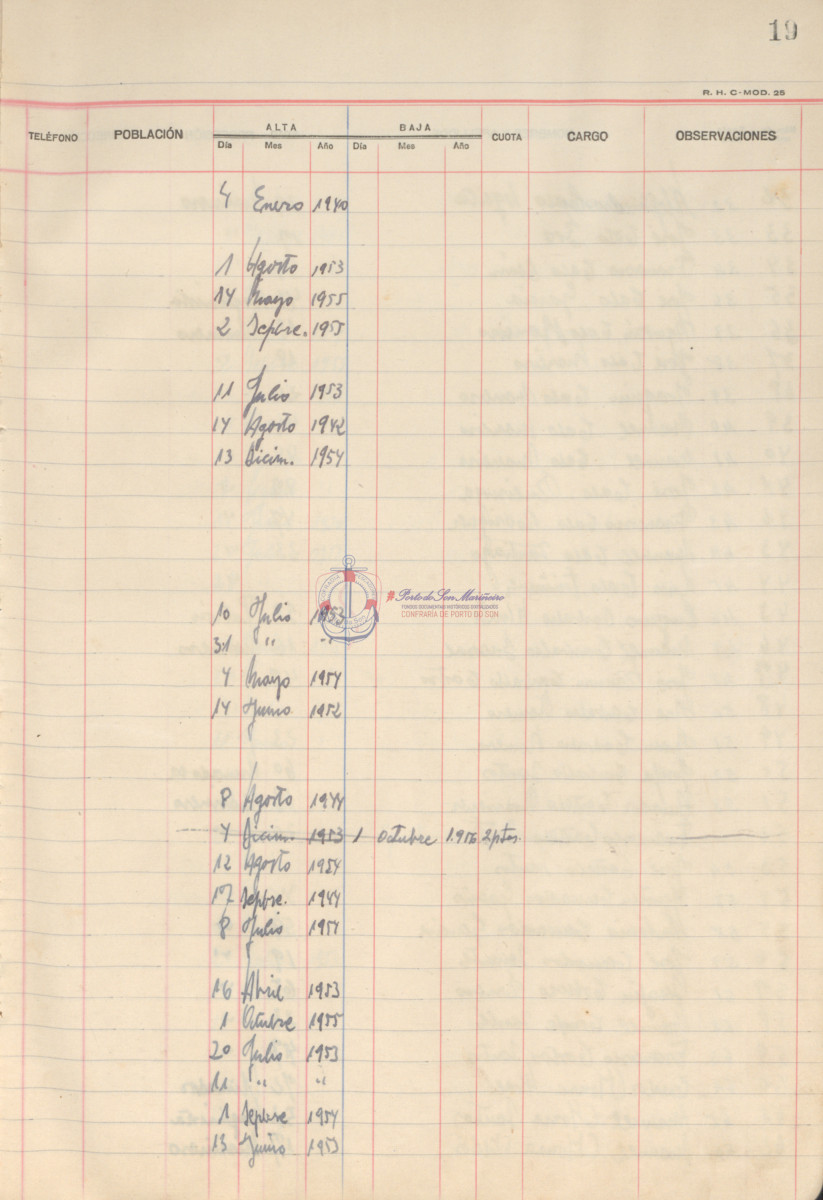 19
R. H. C-MOD. 25
TELÉFONO POBLACIÓN ALTA BAJA CUOTA CARGO OBSERVACIONES
Día Mes Año Día Mes Año
4 Enero 1940
1 Agosto 1953
14 Mayo 1955
2 Sepbre. 1955
11 Julio 1953
14 Agosto 1942
13 Dicim. 1954
Porto do Son Mariñeiro
FONDOS DOCUMENTAIS HISTÓRICOS DIXITALIZADOS
CONFRARÍA DE PORTO DO SON
10 Julio 1953
31 " "
4 Mayo 1954
14 Junio 1952
8 Agosto 1944
4 Dicim. 1953 1 Octubre 1.956 2 ptas.
12 Agosto 1954
17 Sepbre. 1944
8 Julio 1954
16 Abril 1953
1 Octubre 1955
20 Julio 1953
11 " "
1 Sepbre 1954
13 Junio 1953